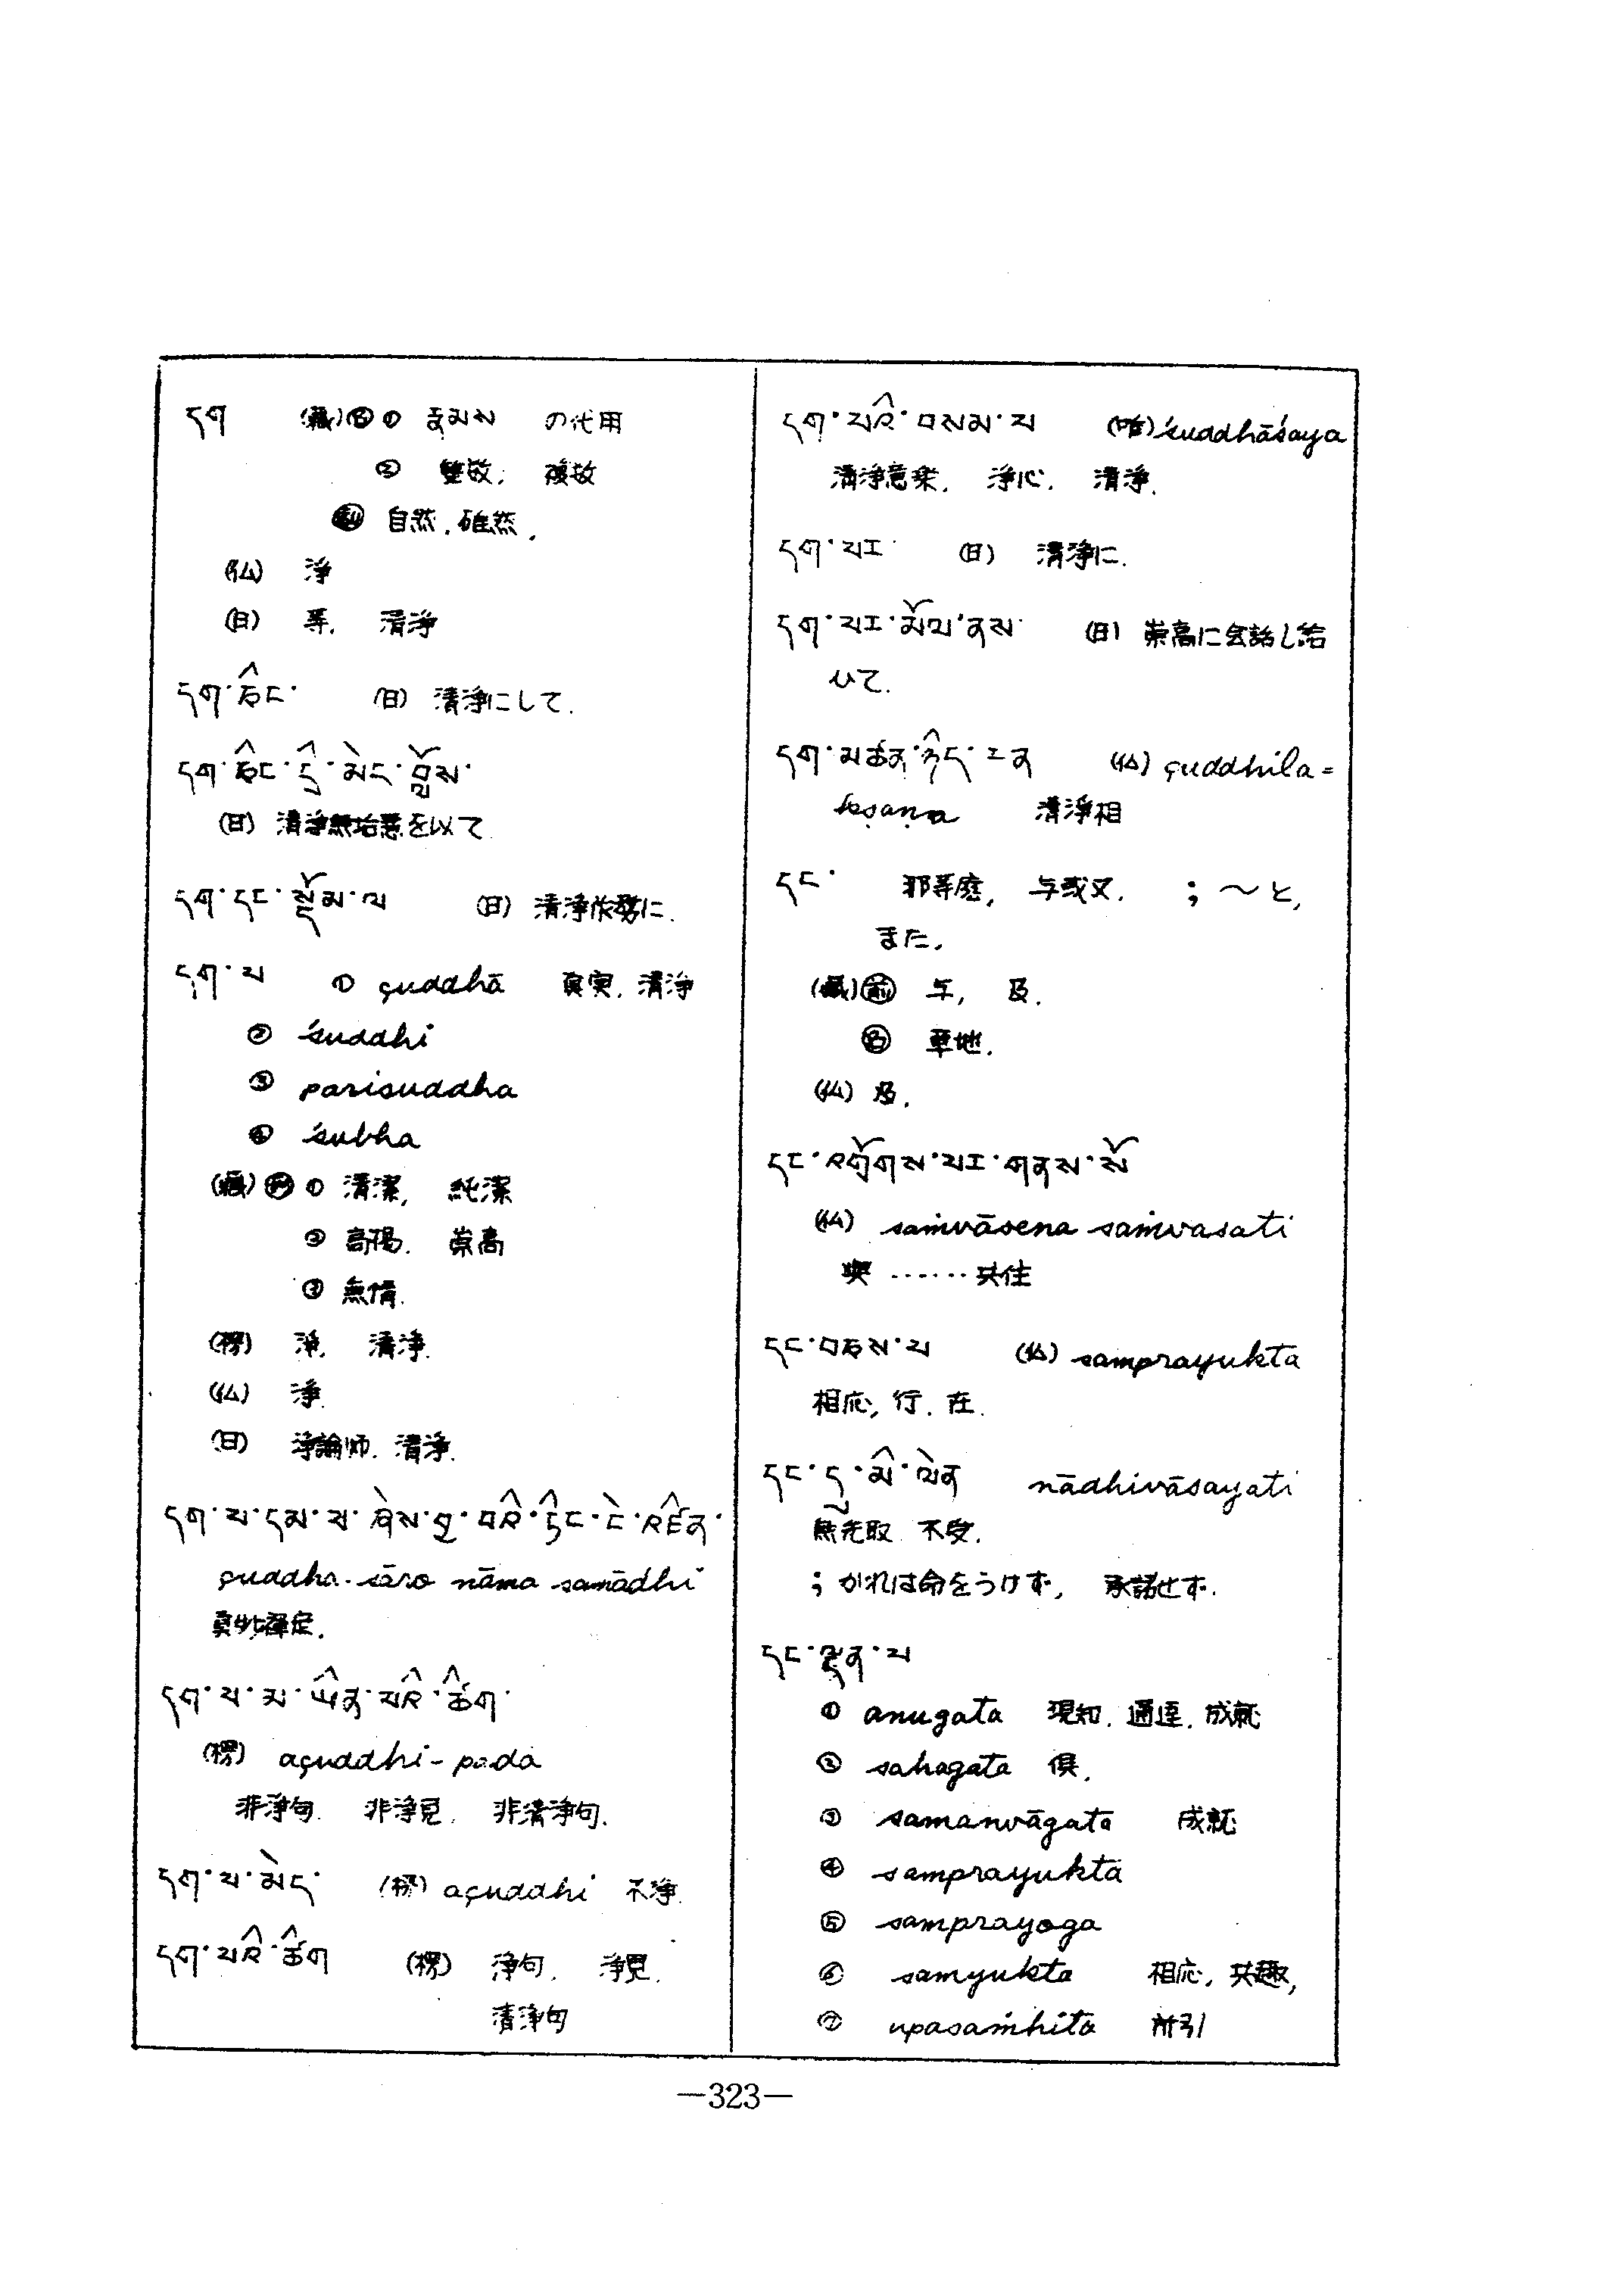 དག (蔵)㊔① རྣམས の代用
② 雙数; 複数
㊓ 自然, 確然,
(仏) 浄
(日) 等, 清浄
དག་ཅིང་ (日) 清浄にして.
དག་ཅིང་དྲི་མེད་བློས་
(日) 清浄無垢慧を以て
དག་དང་སྡོམ་ལ (日) 清浄
དག་པ ① çuddhā 真実, 清浄
② śuddhi
③ parisuddha
④ śubha
(蔵) ① 清潔, 純潔
② 高揚. 崇高
③ 無情.
(楞) 浄, 清浄.
(仏) 浄.
(日) 浄論师. 清浄.
དག་པ་དམ་པ་ཞེས་བྱ་བའི་ཏིང་ངེ་འཛིན་
çuddha-sāro nāma samādhi
真妙禅定.
དག་པ་མ་ཡིན་པའི་ཚིག་
(楞) açuddhi-pada
非浄句. 非浄見. 非清浄句.
དག་པ་མེད་ (楞) açuddhi 不浄.
དག་པའི་ཚིག (楞) 浄句. 浄見.
清浄句
དག་པའི་བསམ་པ (唯) śuddhāśaya
清浄意楽. 浄心. 清浄.
དག་པར་ (日) 清浄に.
དག་པར་མོལ་ནས་ (日) 崇高に会話し給
ひて.
དག་མཚན་ཉིད་ཅན (仏) çuddhila=
kṣaṇa 清浄相
དང་ 耶等庭, 与或又. ; 〜と,
また,
(蔵)㊒ 与, 及.
㊔ 草地.
(仏) 及.
དང་འགྲོགས་པར་གནས་སོ
(仏) saṁvāsena saṁvasati
與 ……共住
དང་བཅས་པ (仏) samprayukta
相応, 行. 在.
དང་དུ་མི་ལེན nādhivāsayati
無先取 不受.
; かれは命をうけず, 承諾せず.
དང་ལྡན་པ
① anugata 現知. 通達. 成就
② sahagata 倶.
③ samanvāgata 成就
④ samprayukta
⑤ samprayoga
⑥ samyukta 相応, 共趣,
⑦ upasaṁhita 所引
—323—